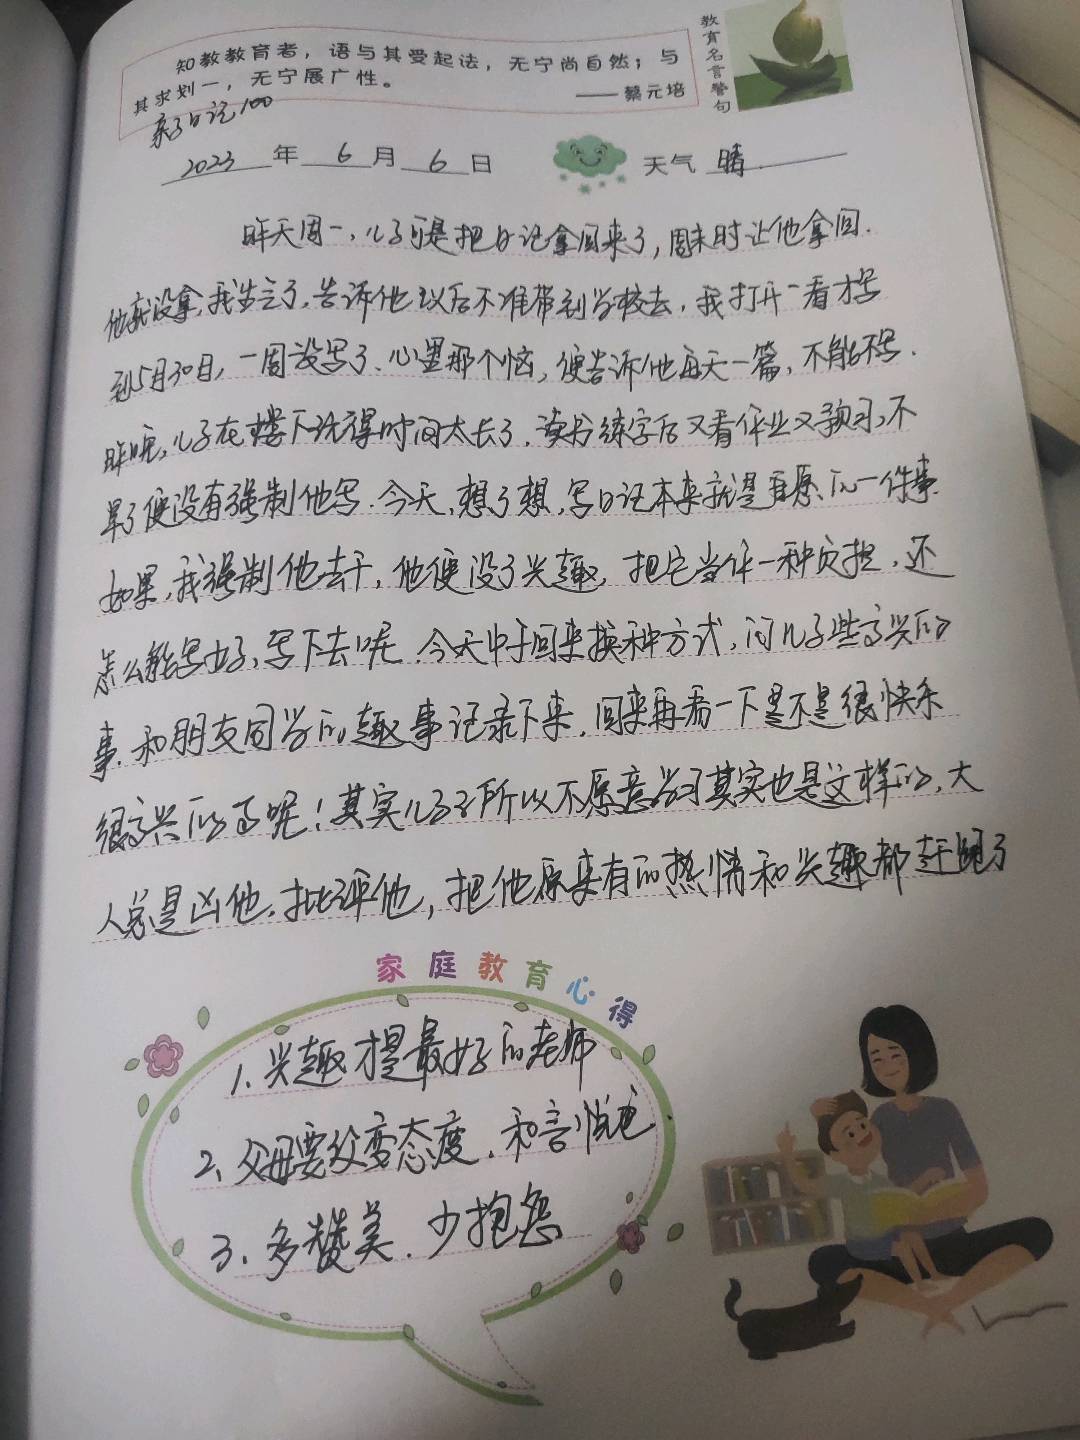 知教教育者，语与其受起法，无宁尚自然；与
其求划一，无宁展广性。
——蔡元培
教育名言警句
亲子日记100
2023年6月6日 天气 晴
昨天周一，儿子可是把日记拿回来了，周末时让他拿回.
他就没拿，我生气了，告诉他以后不准带到学校去，我打开一看才写
到5月30日，一周没写了、心里那个恼，便告诉他每天一篇，不能不写.
昨晚，儿子在楼下玩得时间太长了．读书练字后又看作业又预习，不
早了便没有强制他写．今天，想了想，写日记本来就是自愿的一件事
如果，我强制他去干，他便没了兴趣，把它当作一种负担，还
怎么能写好，写下去呢．今天中午回来换种方式，问儿子些高兴的
事．和朋友同学的趣事记录下来，回来再看一下是不是很快乐
很高兴的事呢！其实儿子之所以不愿意学习其实也是这样的，大
人总是凶他．批评他，把他原来有的热情和兴趣都赶跑了
家庭教育心得
1、兴趣才是最好的老师
2、父母要改变态度．和言悦色.
3、多赞美．少抱怨